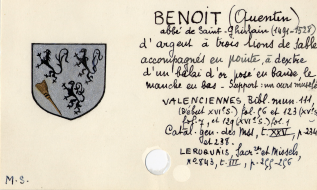 BENOIT (Quentin)
abbé de Saint-Ghislain (1491-1528)
d'argent à trois lions de sable
accompagnés en pointe, à dextre
d'un balai d'or posé en bande, le
manche en bas - Support: un ours muselé
VALENCIENNES Bibl. mun. 111,
(Début XVIe s.) fol. 56 et 123 (XVe s.)
fol. 7, et 129 (XVIe s.) fol. 1
Catal. gén. des Mss, t. XXV, p. 234
et 238.
LEROQUAIS, Sacres et Missels,
n° 843, t. III, p. 255-256
M.S.